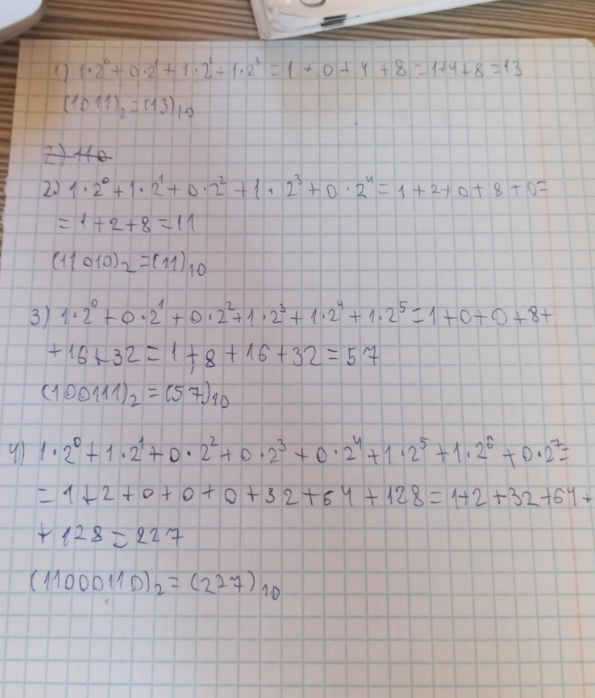 1) 1·2⁰+0·2¹+1·2²+1·2³=1+0+4+8=1+4+8=13
(1011)₂=(13)₁₀
2) 110
2) 1·2⁰+1·2¹+0·2²+1·2³+0·2⁴=1+2+0+8+0=
=1+2+8=11
(11010)₂=(11)₁₀
3) 1·2⁰+0·2¹+0·2²+1·2³+1·2⁴+1·2⁵=1+0+0+8+
+16+32=1+8+16+32=57
(100111)₂=(57)₁₀
4) 1·2⁰+1·2¹+0·2²+0·2³+0·2⁴+1·2⁵+1·2⁶+0·2⁷=
=1+2+0+0+0+32+64+128=1+2+32+64+
+128=227
(11000110)₂=(227)₁₀